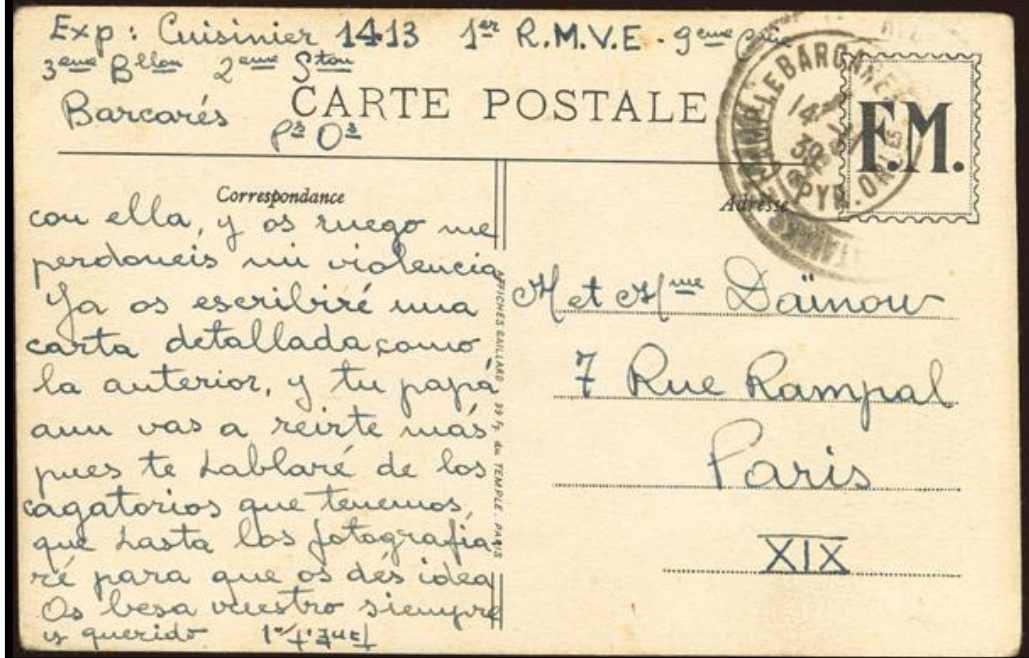 Exp: Cuisinier 1413 1er R.M.V.E - 9eme Cie
3eme Bllon 2eme Ston
Barcarés
CARTE POSTALE
Ps Os
F.M.
CAMP LE BARCARES
14
39
PYR. ORles
Correspondance
Adresse
con ella, y os ruego me
perdoneis mi violencia
Ya os escribiré una
carta detallada, como
la anterior, y tu papá
aun vas a reirte más
pues te hablaré de los
cagatorios que tenemos,
que hasta los fotografia-
ré para que os dés idea
Os besa vuestro siempre
y querido
AFFICHES GAILLARD, 99 Fg. du TEMPLE. PARIS
M et Mme Daïnow
7 Rue Rampal
Paris
XIX